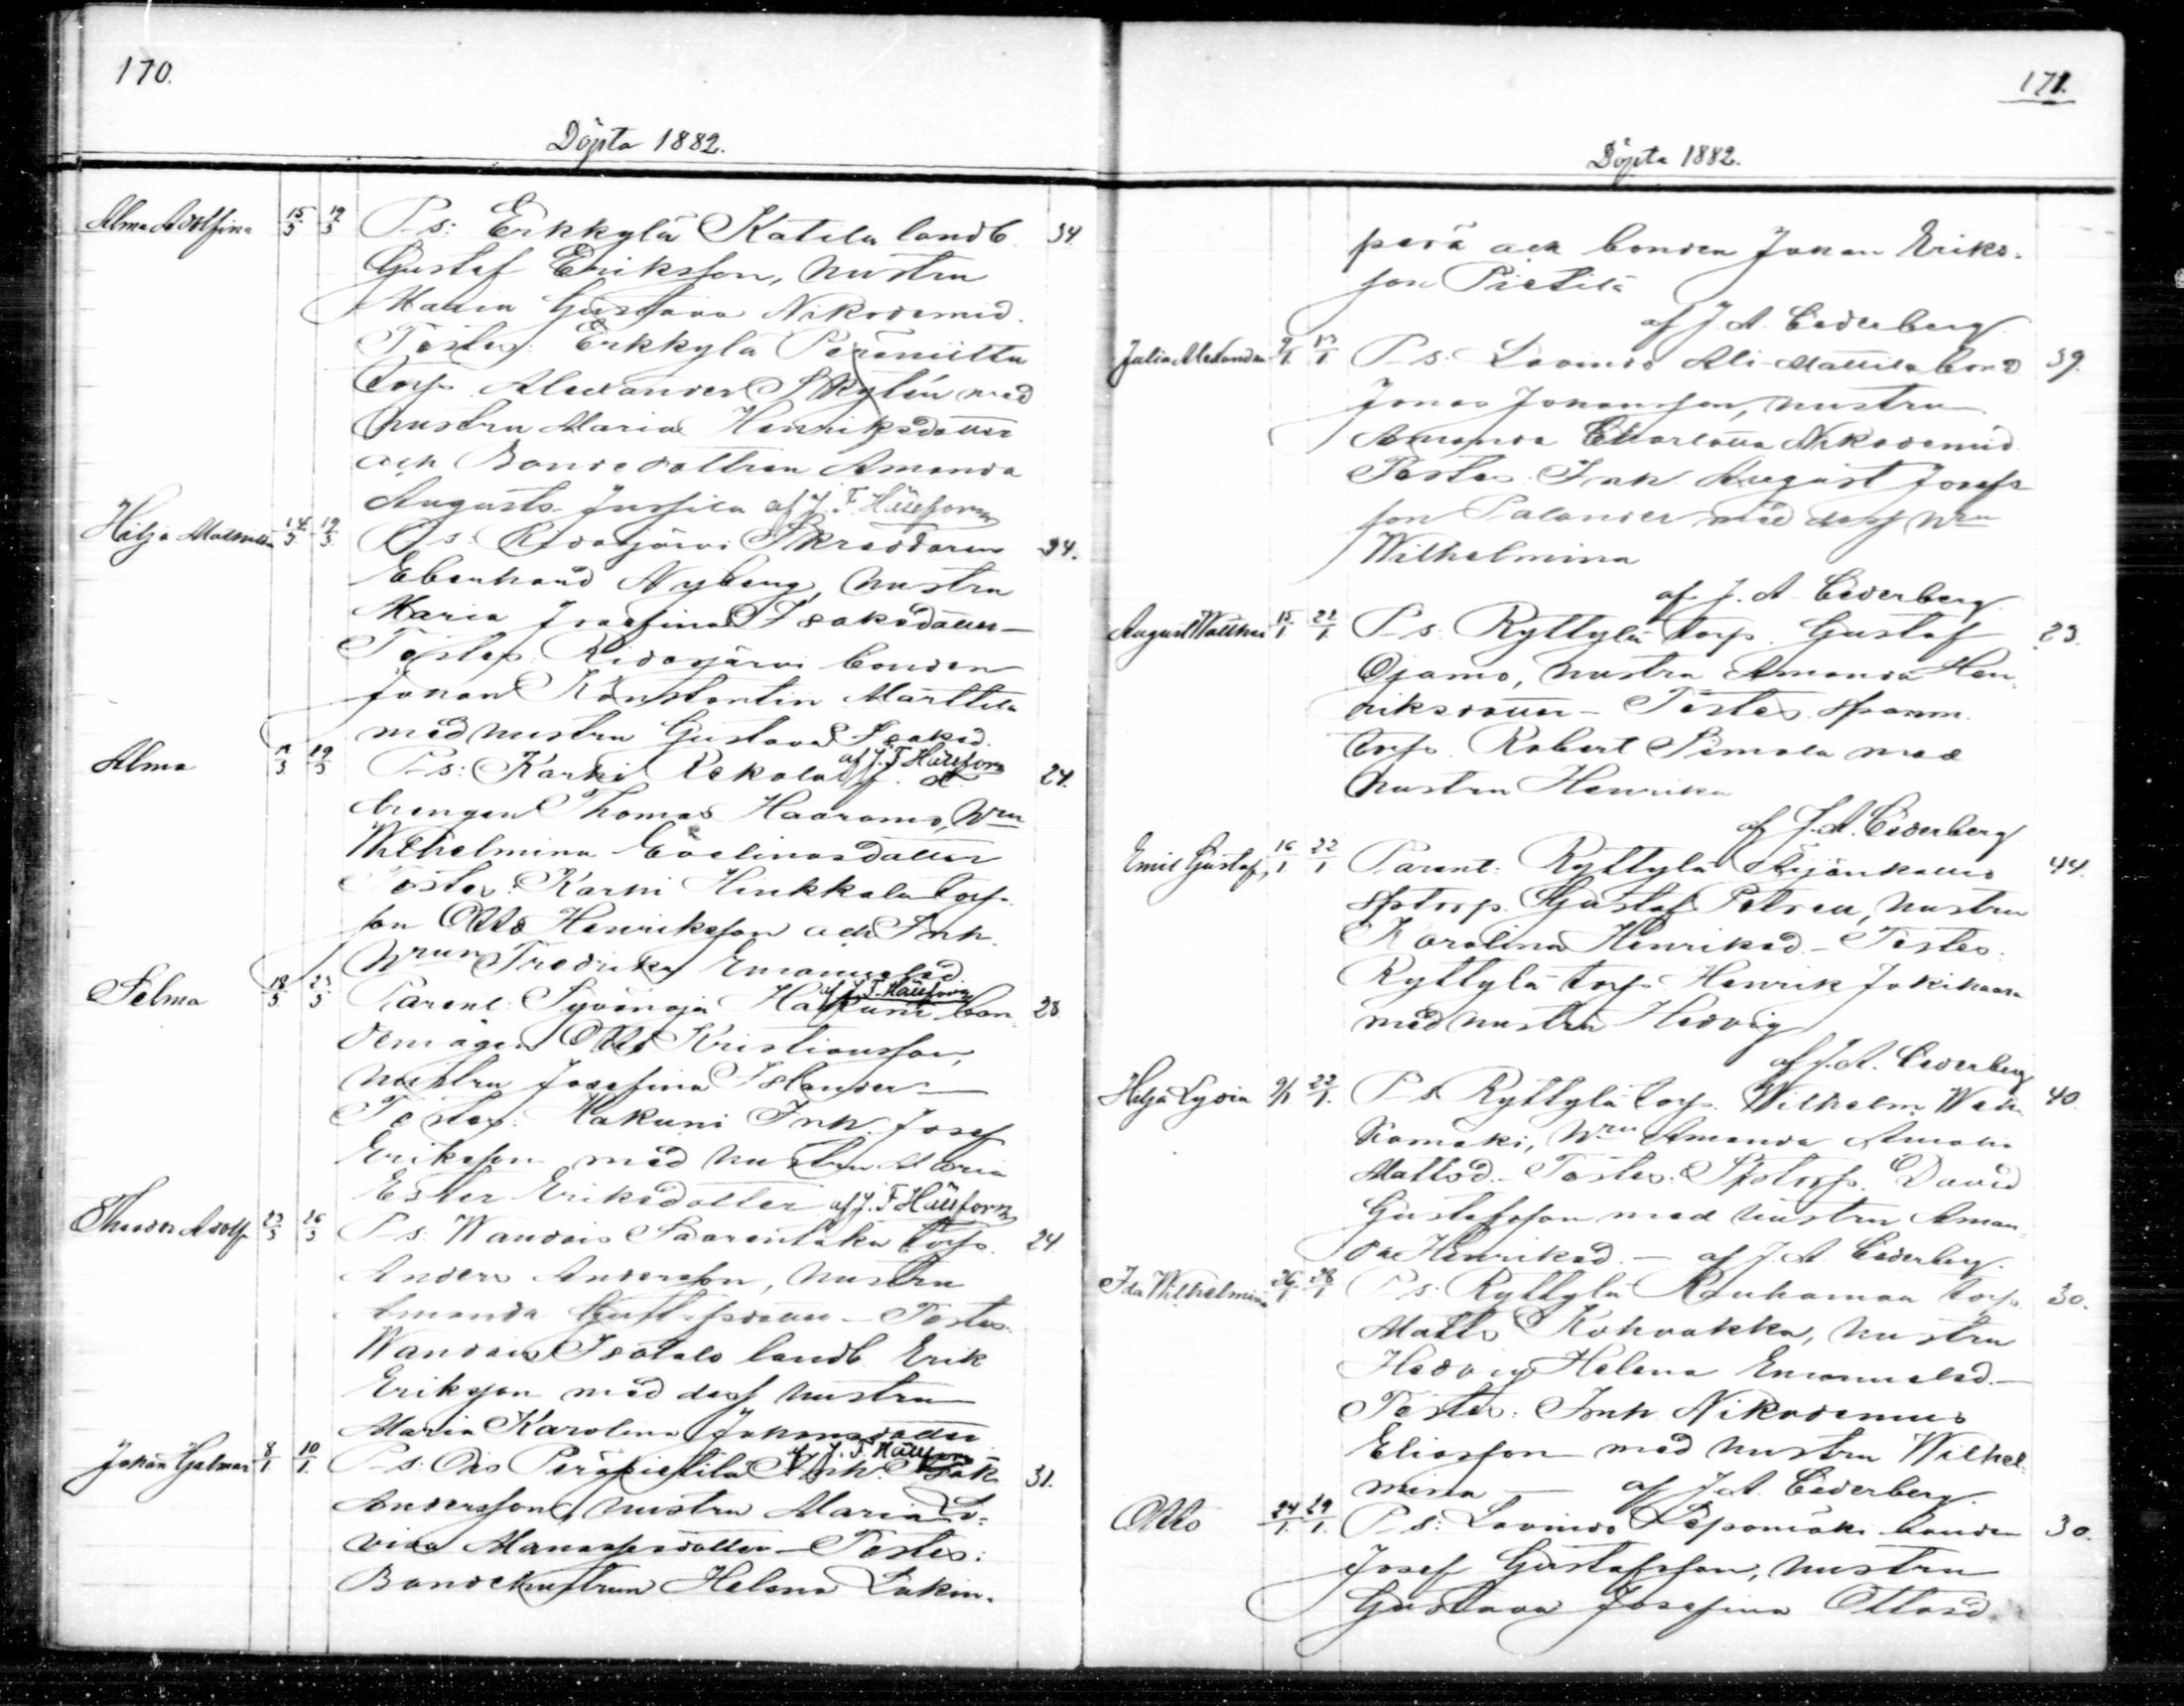 170.
Döpta 1882.
Alma Adolfina 15/3 19/3 P-s: Erkkylä Katila landb. 34
Gustaf Eriksson, hustru
Maria Gustava Nikodemid.
Testes: Erkkylä Peräniittu
torp. Alexander Skytén med
hustru Maria Henriksdotter
och Bondedottren Amanda
Augusta Jussila af J. F. Hällfors
Hilja Mathilda 14/3 19/3 P-s: Ridasjärvi Skräddaren 34.
Eberhard Nyberg, hustru
Maria Josefina Isaksdotter –
Testes: Ridasjärvi bonden
Johan Konstantin Marttila
med hustru Gustava Isaksd.
af J. F. Hällfors
Alma 19/3 P-s: Karhi Kekola 24.
drengen Thomas Haaramo, Hru
Wilhelmina Evelinasdotter
Testes: Karhi Heikkala torp.
son Otto Henriksson och Inh.
Hrun Fredrika Emanuelsd.
af J. F. Hällfors
Selma 18/3 23/3 Parent: Syvänoja Hakuni bon 28
demågen Otto Kristiansson,
hustru Josefina Islander –
Testes: Hakuni Inh. Josef
Eriksson med hustru Maria
Ester Eriksdotter af J. F. Hällfors
Theodor Adolf 23/3 26/3 P-s: Wandais Saarentaka torp. 24
Anders Andersson, hustru
Amanda Gustafsdotter – Testes:
Wandais Isotalo landb. Erik
Eriksson med dess hustru
Maria Karolina Johansdotter
af J. F. Hällfors
Johan Hjalmar 8/1 10/1 P-s: Ois Peräpietilä Inh. Isak 31.
Andersson, hustru Maria Lo-
visa Manassesdotter – Testes:
Bondehustrun Helena Lakin-
171.
Döpta 1882.
perä och bonden Johan Eriks-
son Pietilä
af J. A. Cederberg.
Julia Alexandra 9/1 P-s: Lavinto Ali-Mattila bond 39.
Jonas Johansson, hustru
Amanda Charlotta Nikodemid.
Testes: Inh August Josefs
son Palander med dess Hru
Wilhelmina
af J. A. Cederberg
August Walther 15/1 22/1 P-s: Ryttylä torp. Gustaf 23.
Ojamo, hustru Amanda Hen
riksdotter – Testes:
torp. Robert Simola med
hustru Henrika
af J. A. Cederberg
Emil Gustaf, 16/1 22/1 Parent: Ryttylä Äijänkallio 44.
sptorp. Gustaf Petrell, hustru
Karolina Henriksd – Testes:
Ryttylä torp. Henrik Jokihaara
med hustru Hedvig
af J. A. Cederberg
Hilja Lydia 9/1 22/1 P-s Ryttylä torp. Wilhelm 40
Hru Amanda Amalia
Mattsd. – Testes: Sptorp. David
Gustafsson med hustru Aman
da Henriksd. – af J. A. Cederberg.
Ida Wilhelmina 26/1 28/1 P-s: Ryttylä Rauhamaa torp. 30.
Matts Kohvakka, hustru
Hedvig Helena Emanuelsd. –
Testes: Inh Nikodemus
Eliasson med hustru Wilhel
mina – af J. A. Cederberg.
Otto 24/1 29/1 P-s: Lavinto Lepomäki bonden 30.
Josef Gustafsson, hustru
Gustava Josefina Ottosd.